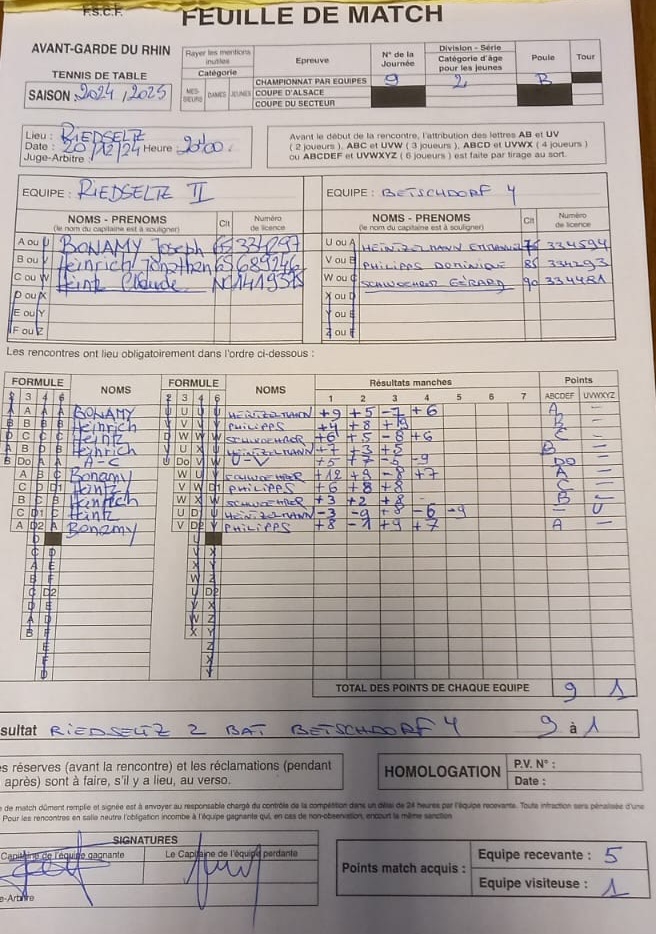 F.S.C.F.
FEUILLE DE MATCH
AVANT-GARDE DU RHIN
TENNIS DE TABLE
SAISON 2024 / 2025
Rayer les mentions inutiles
Catégorie
MESSIEURS DAMES JEUNES
Epreuve
CHAMPIONNAT PAR EQUIPES
COUPE D'ALSACE
COUPE DU SECTEUR
N° de la Journée
9
Division - Série
Catégorie d'âge pour les jeunes
2
Poule
B
Tour
Lieu : RIEDSELTZ
Date : 20/12/24 Heure : 20h00
Juge-Arbitre :
Avant le début de la rencontre, l'attribution des lettres AB et UV
( 2 joueurs ), ABC et UVW ( 3 joueurs ), ABCD et UVWX ( 4 joueurs )
ou ABCDEF et UVWXYZ ( 6 joueurs ) est faite par tirage au sort.
EQUIPE : RIEDSELTZ II
NOMS - PRENOMS
(le nom du capitaine est à souligner)
Clt
Numéro de licence
A ou U BONAMY Joseph 65 334297
B ou V Heinrich Jonathan 65 689246
C ou W Heintz Claude NC
D ou X
E ou Y
F ou Z
EQUIPE : BETSCHDORF 4
NOMS - PRENOMS
(le nom du capitaine est à souligner)
Clt
Numéro de licence
U ou A HEINTZELMANN 75 334594
V ou B PHILIPPS DOMINIQUE 85 334293
W ou C GERARD 90 334481
X ou D
Y ou E
Z ou F
Les rencontres ont lieu obligatoirement dans l'ordre ci-dessous :
FORMULE NOMS FORMULE NOMS Résultats manches Points
2 3 4 6 2 3 4 6 1 2 3 4 5 6 7 ABCDEF UVWXYZ
A A A BONAMY U U U HEINTZELMANN +9 +5 -7 +6 A –
B B B Heinrich V V V PHILIPPS +4 +8 B –
C C C Heintz W W W +6 +5 -8 +6 C –
B D Heinrich U X +7 +3 +5 B –
Do A A-C Do V U-V +5 +7 -5 -9 DO –
A B C Bonamy W U +12 +9 -8 +7 A –
C D D1 Heintz V W D1 PHILIPPS +6 +8 +8 C –
B C B Heinrich W X W +3 +2 +8 B –
C D1 C Heintz U D HEINTZELMANN -3 -9 +8 -6 -9 – U
A D2 A Bonamy V D2 PHILIPPS +8 -1 +9 +7 A –
TOTAL DES POINTS DE CHAQUE EQUIPE 9 1
sultat RIEDSELTZ 2 BAT BETSCHDORF 4 9 à 1
es réserves (avant la rencontre) et les réclamations (pendant
après) sont à faire, s'il y a lieu, au verso.
HOMOLOGATION
P.V. N° :
Date :
e de match dûment remplie et signée est à envoyer au responsable chargé du contrôle de la compétition dans un délai de 24 heures par l'équipe recevante. Toute infraction sera pénalisée d'une
Pour les rencontres en salle neutre l'obligation incombe à l'équipe gagnante qui, en cas de non-observation, encourt la même sanction
SIGNATURES
Capitaine de l'équipe gagnante
Le Capitaine de l'équipe perdante
e-Arbitre
Points match acquis :
Equipe recevante : 5
Equipe visiteuse : 1